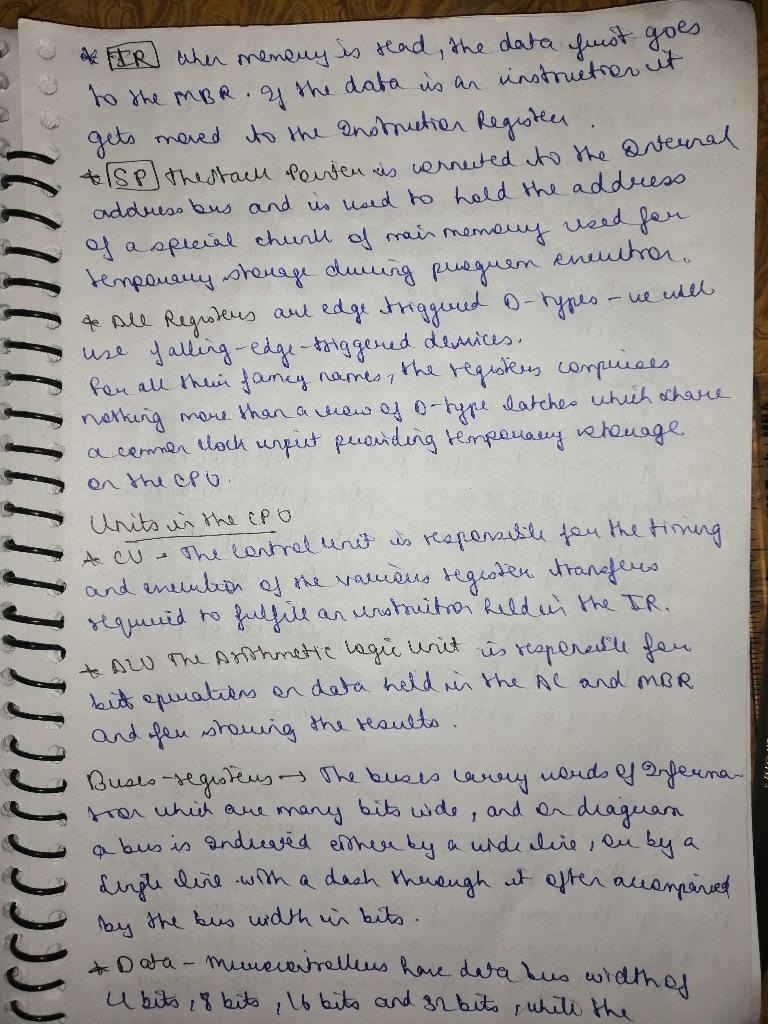 * IR when memory is read, the data first goes
to the MBR. If the data is an instruction it
gets moved to the Instruction Register.
* SP The Stack Pointer is connected to the internal
address bus and is used to hold the address
of a special chunk of main memory used for
temporary storage during program execution.
* All Registers are edge triggered D-types - we will
use falling-edge-triggered devices.
For all their fancy names, the registers comprises
nothing more than a row of D-type latches which share
a common clock input providing temporary storage
on the CPU.
Units in the CPU
* CU - The Control Unit is responsible for the timing
and execution of the various register transfers
required to fulfill an instruction held in the IR.
* ALU The Arithmetic Logic Unit is responsible for
bit operations on data held in the AC and MBR
and for storing the results.
Buses-registers → The buses carry words of Informa-
tion which are many bits wide, and on diagram
a bus is indicated either by a wide line, or by a
single line with a dash through it often accompanied
by the bus width in bits.
* Data - Microcontrollers have data bus width of
4 bits, 8 bits, 16 bits and 32 bits, while the